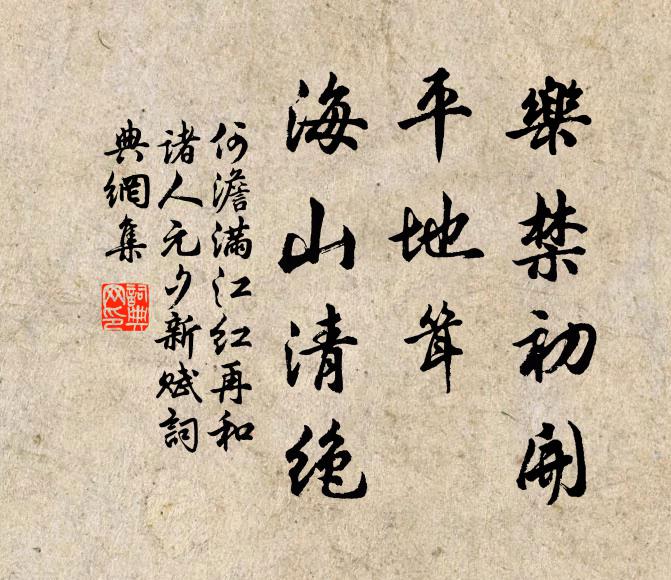 樂禁初開
平地聳
海山清絶
何澹滿江紅再和
諸人元夕新賦詞
典網集
詞典網印